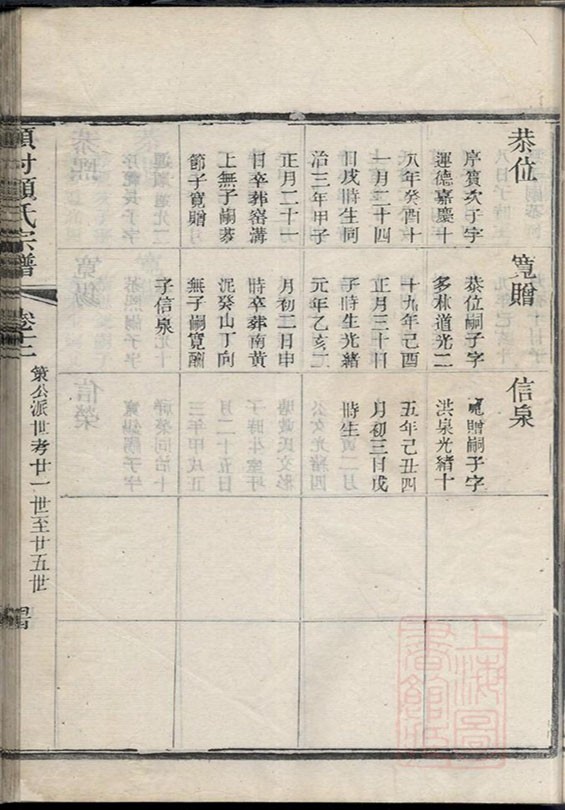 恭位
序賓次子字
運德嘉慶十
八年癸酉十
一月二十四
日戌時生同
治三年甲子
正月二十一
日卒葬窑溝
上無子嗣恭
節子寬贈
寬贈
恭位嗣子字
多林道光二
十九年己酉
正月三十日
子時生光緒
元年乙亥二
月初二日申
時卒葬南黃
泥癸山丁向
無子嗣寬酬
子信泉
信泉
寬贈嗣子字
洪泉光緒十
五年己丑四
月初三日戌
時生
顧氏宗譜
卷十二
策公派世考廿一世至廿五世
上海圖
書館藏